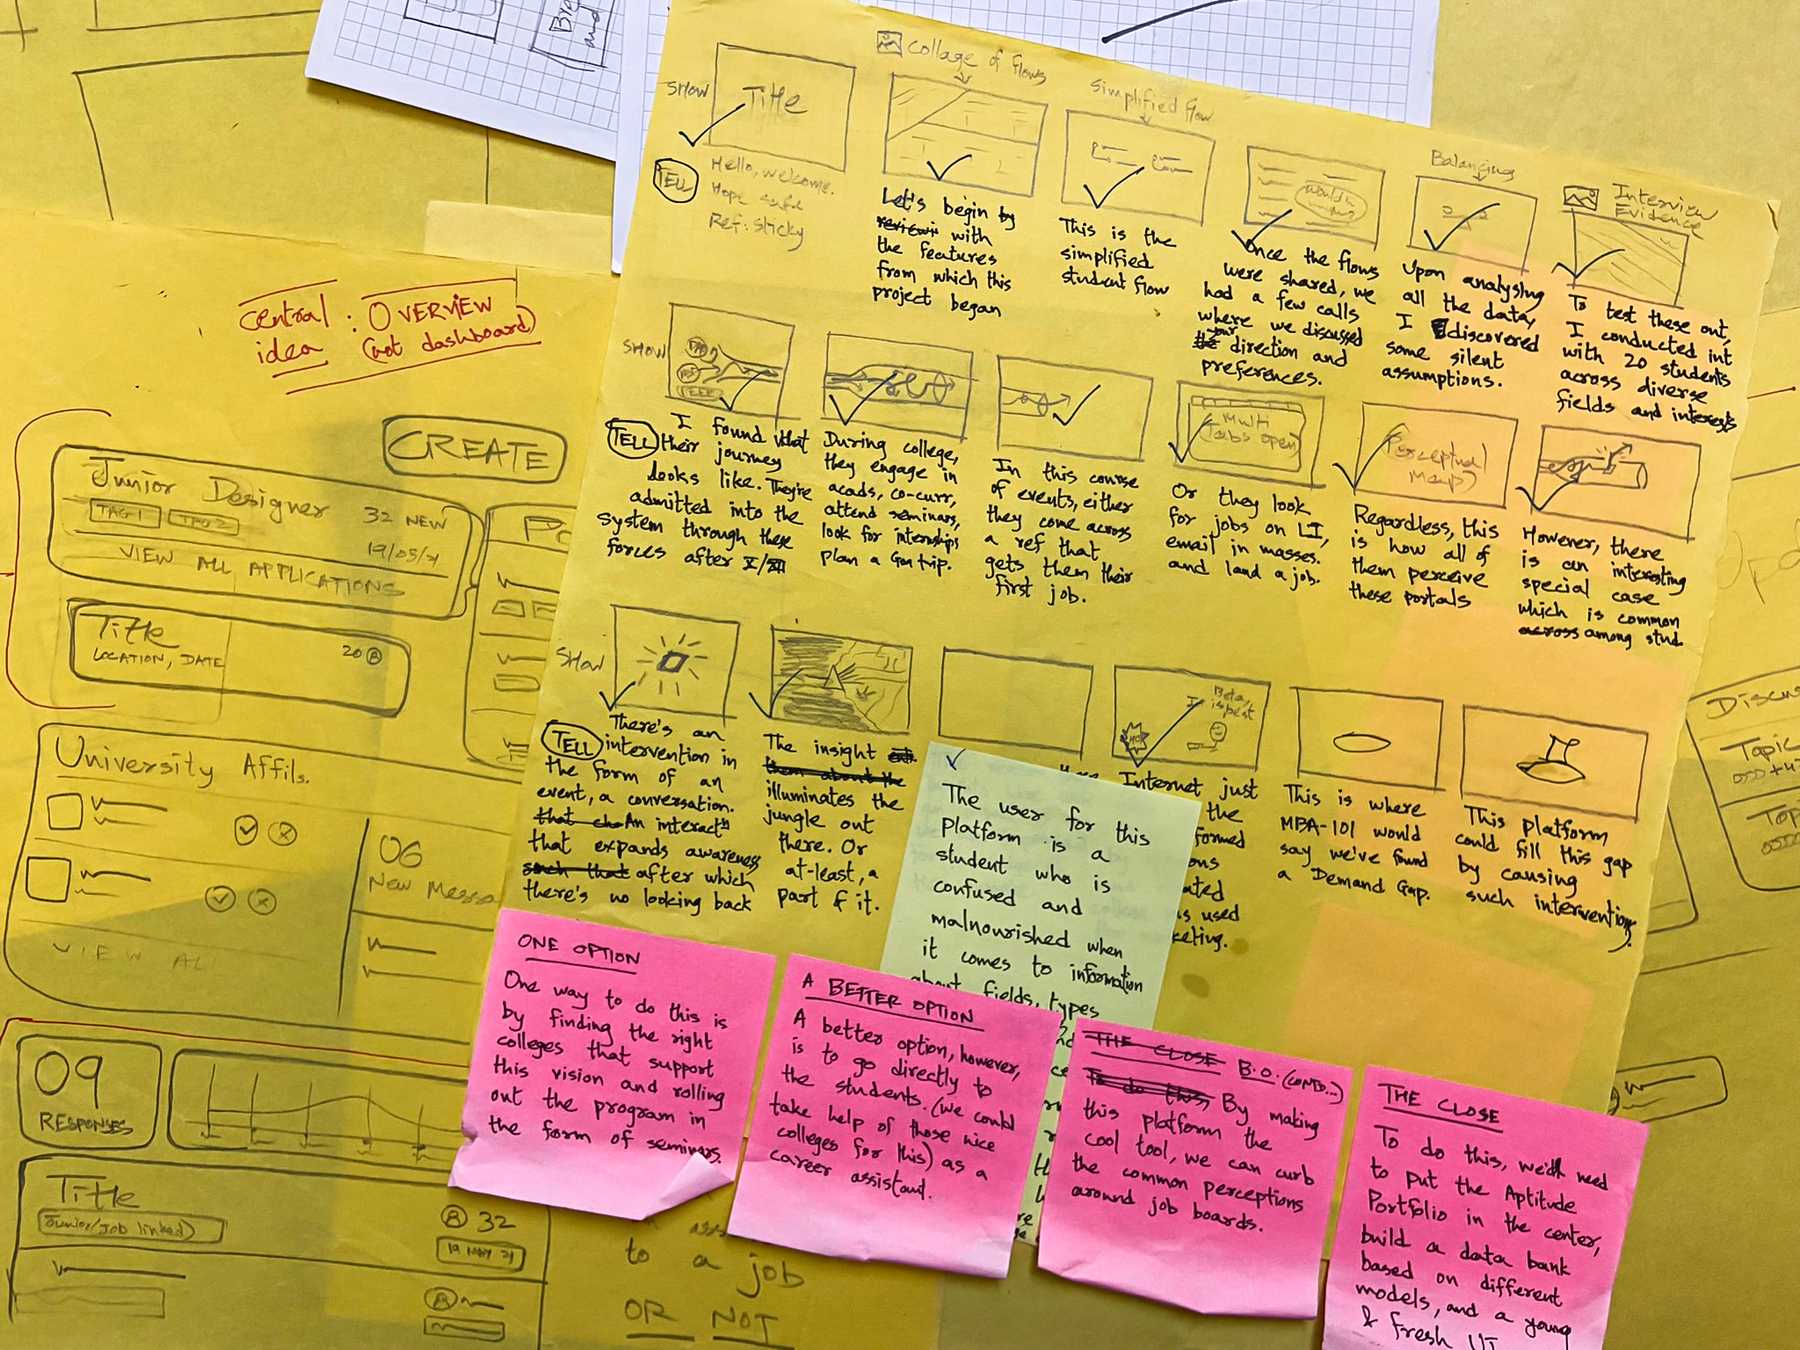 Collage of flows
Simplified flow
Balancing
Interview
Evidence
SHOW
Title
would
TELL
Hello, welcome.
Hope safe
Ref: sticky
Let's begin by
with
the features
from which this
project began
This is the
simplified
student flow
Once the flows
were shared, we
had a few calls
where we discussed
your
the direction and
preferences.
Upon analysing
all the data,
I discovered
some silent
assumptions.
To test these out,
I conducted int
with 20 students
across diverse
fields and interests
SHOW
Multi
tabs open
Perceptual
Map
TELL
I found what
their journey
looks like. They're
admitted into the
system through these
forces after X/XII
During college,
they engage in
acads, co-curr,
attend seminars,
look for internships
plan a Goa trip.
In this course
of events, either
they come across
a ref that
gets them their
first job.
Or they look
for jobs on LI,
email in masses.
and land a job.
Regardless, this
is how all of
them perceive
these portals
However, there
is an interesting
special case
which is common
across among stud.
SHOW
TELL
There's an
intervention in
the form of an
event, a conversation.
An interactn
that expands awareness
such that after which
there's no looking back
The insight
them about the
illuminates the
jungle out
there. Or
at-least, a
part of it.
Internet just
the
used
This is where
MBA-101 would
say we've found
a Demand Gap.
This platform
could fill this gap
by causing
such interventions.
The user for this
platform is a
student who is
confused and
malnourished when
it comes to information
about fields, types
ONE OPTION
One way to do this is
by finding the right
colleges that support
this vision and rolling
out the program in
the form of seminars.
A BETTER OPTION
A better option, however,
is to go directly to
the students. (we could
take help of those nice
colleges for this) as a
career assistant.
THE CLOSE B.O. (CONTD...)
To do this, By making
this platform the
cool tool, we can curb
the common perceptions
around job boards.
THE CLOSE
To do this, we'll need
to put the Aptitude
Portfolio in the center,
build a data bank
based on different
models, and a young
& fresh UI
central : OVERVIEW
idea (not dashboard)
CREATE
Junior Designer
TAG 1
TAG 2
32 NEW
19/05/21
VIEW ALL APPLICATIONS
Title
LOCATION, DATE
20
University Affils.
VIEW ALL
06
New Messa
09
RESPONSES
Title
(Junior/Job linked)
32
19 MAY 21
to a job
OR NOT
Discus
Topic
Top